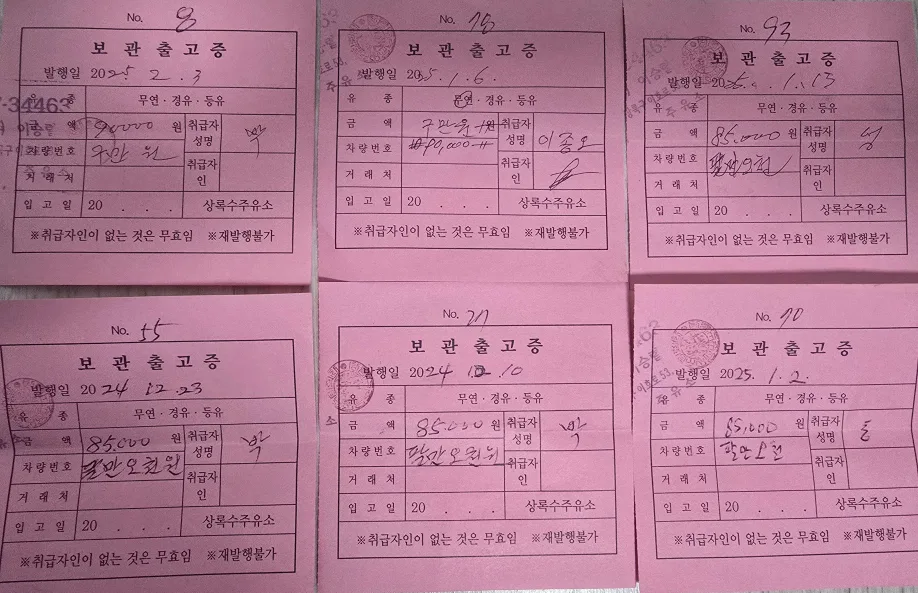 No. 8
보관출고증
발행일 2025 2 . 3
유 종 무연·경유·등유
금 액 90000 원 취급자 성명 박
차량번호 구만 원
거 래 처 취급자 인
입 고 일 20 . . . 상록수주유소
※취급자인이 없는 것은 무효임 ※재발행불가
No. 18
보관출고증
발행일 2025. 1. 6.
유 종 무연·경유·등유
금 액 구만원 취급자 성명 이종오
차량번호 ₩90,000
거 래 처 취급자 인
입 고 일 20 . . . 상록수주유소
※취급자인이 없는 것은 무효임 ※재발행불가
No. 93
보관출고증
발행일 2025. 1. 13
유 종 무연·경유·등유
금 액 85.000 원 취급자 성명
차량번호 팔만오천
거 래 처 취급자 인
입 고 일 20 . . . 상록수주유소
※취급자인이 없는 것은 무효임 ※재발행불가
No. 55
보관출고증
발행일 2024 12.23
유 종 무연·경유·등유
금 액 85.000 원 취급자 성명 박
차량번호 팔만오천원
거 래 처 취급자 인
입 고 일 20 . . . 상록수주유소
※취급자인이 없는 것은 무효임 ※재발행불가
No.
보관출고증
발행일 2024 12.10
유 종 무연·경유·등유
금 액 85.000 원 취급자 성명 박
차량번호 팔만오천원
거 래 처 취급자 인
입 고 일 20 . . . 상록수주유소
※취급자인이 없는 것은 무효임 ※재발행불가
No. 70
보관출고증
발행일 2025. 1. 2.
유 종 무연·경유·등유
금 액 85.000 원 취급자 성명
차량번호 팔만오천
거 래 처 취급자 인
입 고 일 20 . . . 상록수주유소
※취급자인이 없는 것은 무효임 ※재발행불가